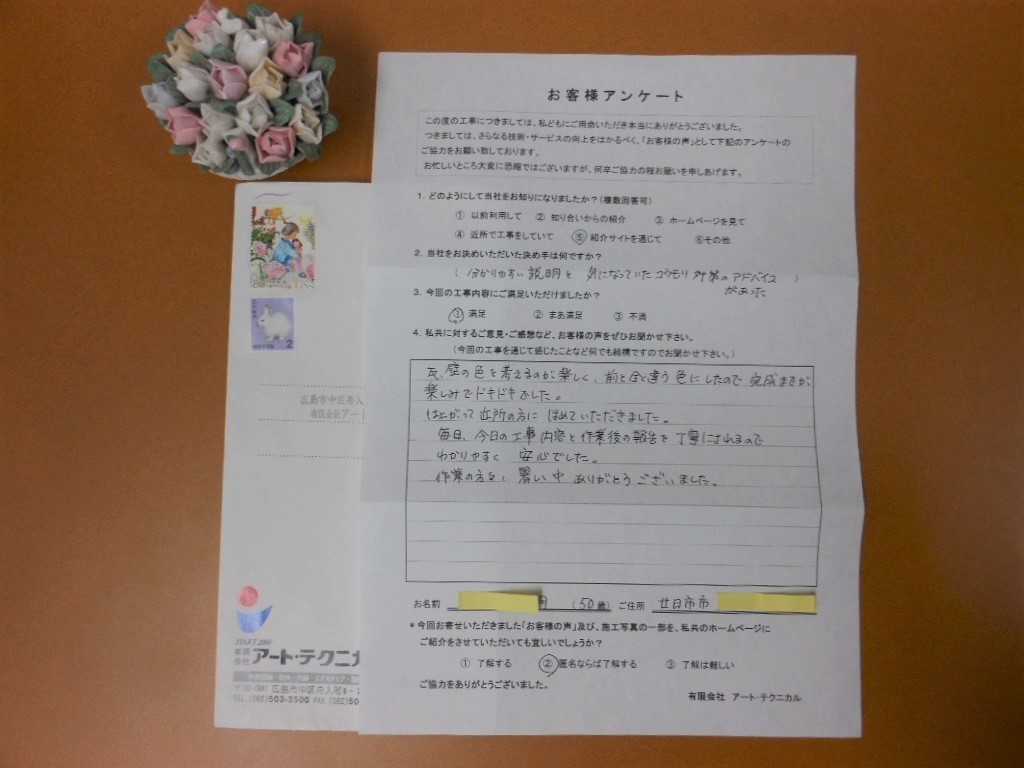 お客様アンケート
この度の工事につきましては、私どもにご用命いただき本当にありがとうございました。
つきましては、さらなる技術・サービスの向上をはかるべく、「お客様の声」として下記のアンケートの
ご協力をお願い致しております。
お忙しいところ大変に恐縮ではございますが、何卒ご協力の程お願いを申しあげます。
1. どのようにして当社をお知りになりましたか?(複数回答可)
① 以前利用して ② 知り合いからの紹介 ③ ホームページを見て
④ 近所で工事をしていて ⑤ 紹介サイトを通じて ⑥その他
2. 当社をお決めいただいた決め手は何ですか?
( 分かりやすい説明と 気になっていたコウモリ対策のアドバイス )
があった
3. 今回の工事内容にご満足いただけましたか?
① 満足 ② まあ満足 ③ 不満
4. 私共に対するご意見・ご感想など、お客様の声をぜひお聞かせ下さい。
(今回の工事を通じて感じたことなど何でも結構ですのでお聞かせ下さい。)
瓦、壁の色を考えるのが楽しく、前と全く違う色にしたので完成までが
楽しみでドキドキでした。
仕上がって近所の方にほめていただきました。
毎日、今日の工事内容と作業後の報告を丁寧にされるので
わかりやすく 安心でした。
作業の方々、暑い中ありがとうございました。
お名前 (50歳) ご住所 廿日市市
*今回お寄せいただきました「お客様の声」及び、施工写真の一部を、私共のホームページに
ご紹介をさせていただいても宜しいでしょうか?
① 了解する ② 匿名ならば了解する ③ 了解は難しい
ご協力をありがとうございました。
有限会社 アート・テクニカル
80
2
NIPPON
広島市中区舟入
有限会社アート
START 2000
有限会社 アート・テクニカ
広島市中区舟入町6-
TEL.(082)503-3500 FAX.(082)50